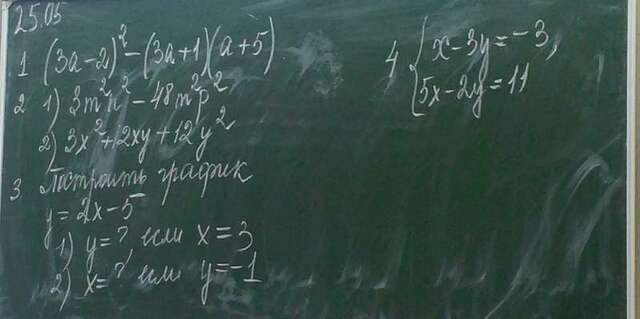 25.05
1 (3a-2)² - (3a+1)(a+5)
2 1) 3m²n² - 48m²p²
2) 3x²+12xy+12y²
3 Построить график
y=2x-5
1) y=? если x=3
2) x=? если y=-1
4 { x-3y=-3,
5x-2y=11